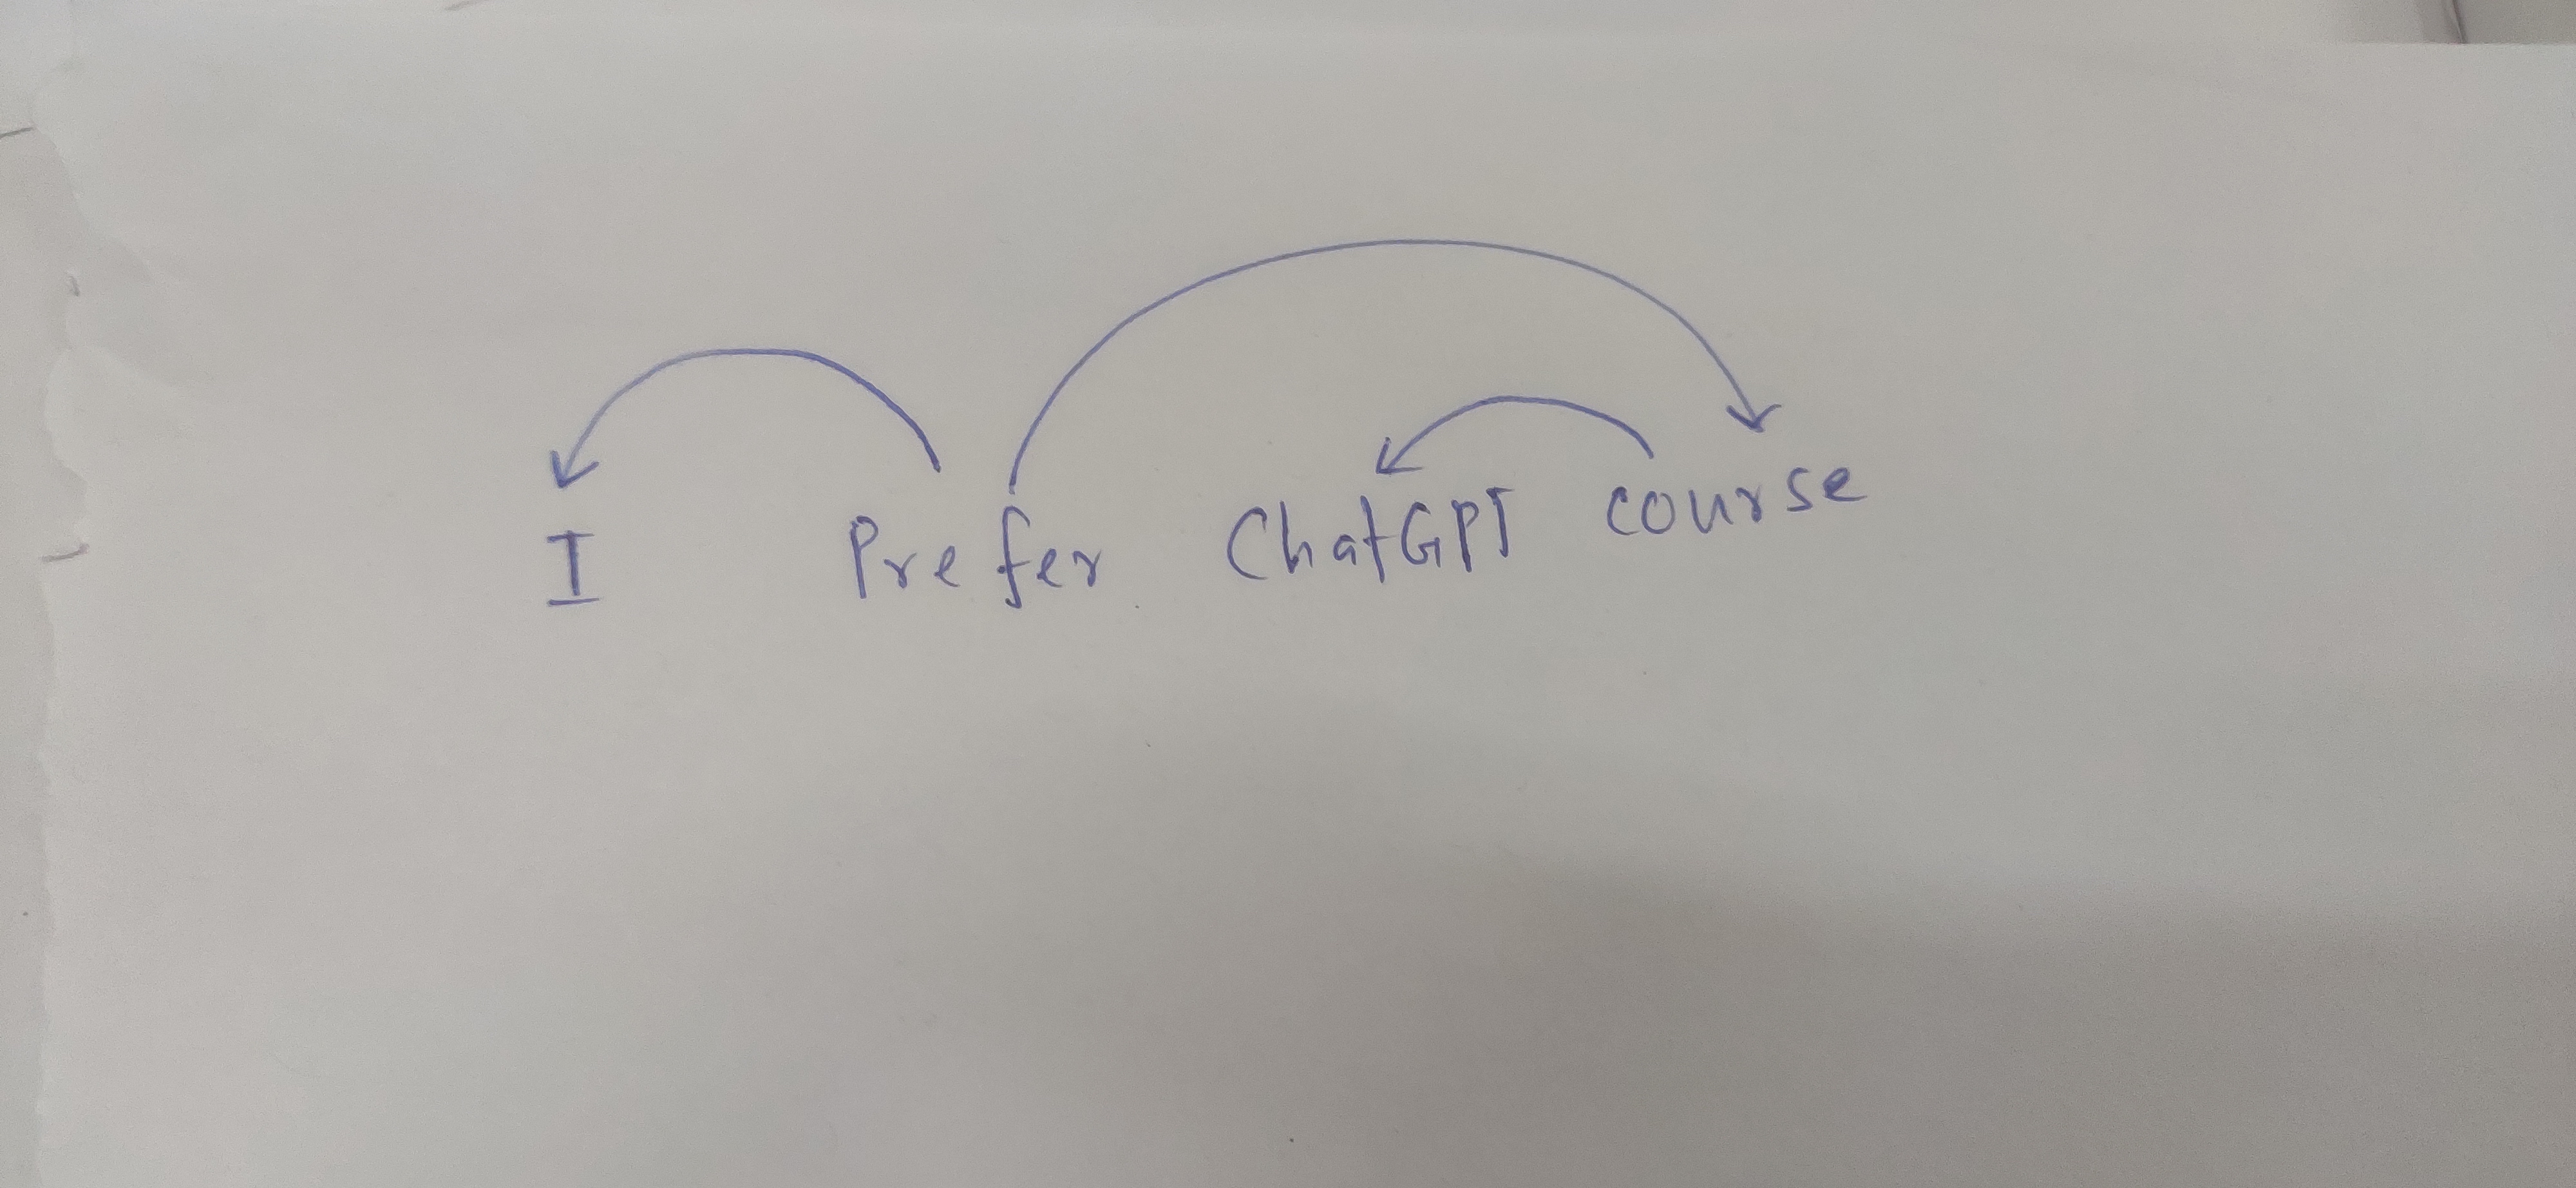 I Prefer ChatGPT course